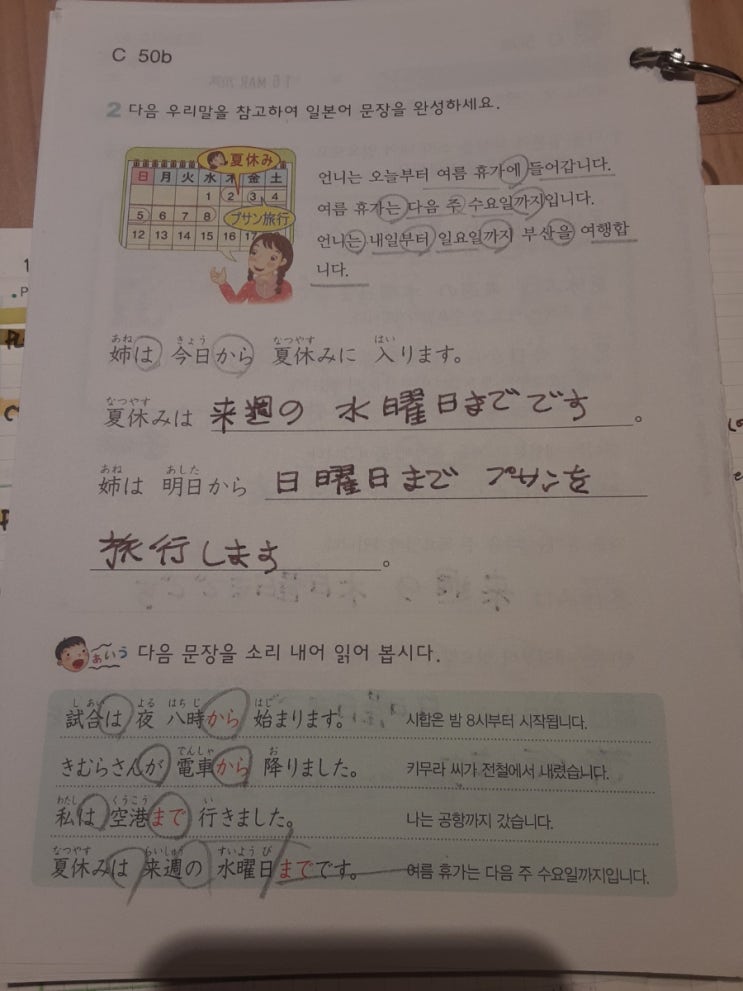 C 50b
16 MAR
2 다음 우리말을 참고하여 일본어 문장을 완성하세요.
夏休み
日 月 火 水 木 金 土
1 2 3 4
5 6 7 8
プサン旅行
12 13 14 15 16 17
언니는 오늘부터 여름 휴가에 들어갑니다.
여름 휴가는 다음 주 수요일까지입니다.
언니는 내일부터 일요일까지 부산을 여행합
니다.
あね きょう なつやす はい
姉は 今日から 夏休みに 入ります。
なつやす
夏休みは 来週の 水曜日までです。
あね あした
姉は 明日から 日曜日まで プサンを
旅行します。
あいう 다음 문장을 소리 내어 읽어 봅시다.
しあい よる はちじ はじ
試合は 夜 八時から 始まります。 시합은 밤 8시부터 시작됩니다.
でんしゃ お
きむらさんが 電車から 降りました。 키무라 씨가 전철에서 내렸습니다.
わたし くうこう い
私は 空港まで 行きました。 나는 공항까지 갔습니다.
なつやす らいしゅう すいようび
夏休みは 来週の 水曜日までです。 여름 휴가는 다음 주 수요일까지입니다.